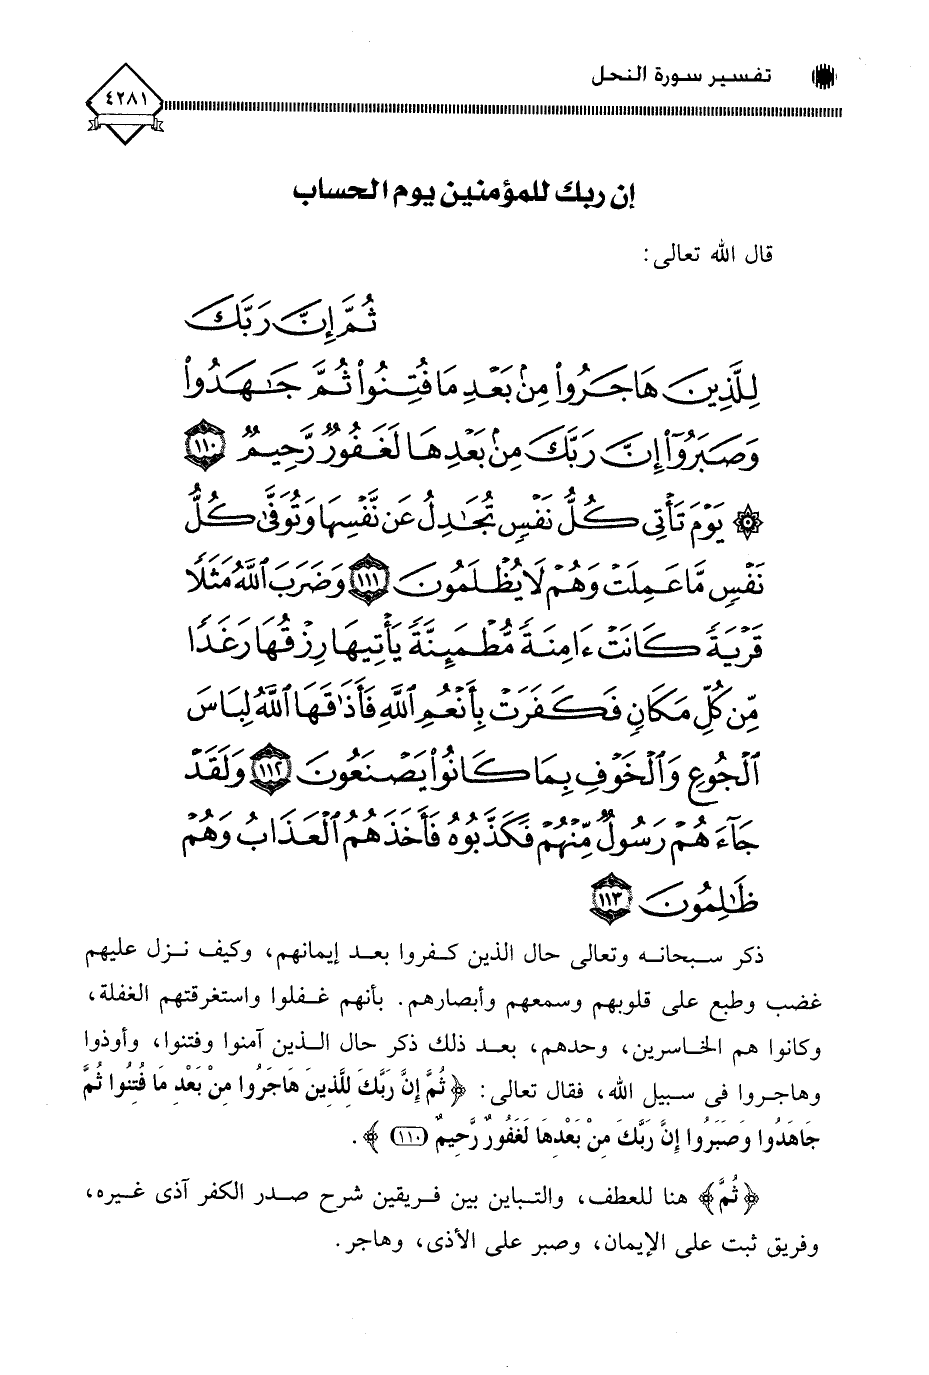 تفسير سورة النحل
٤٢٨١
إن ربك للمؤمنين يوم الحساب
قال الله تعالى:
ثُمَّ إِنَّ رَبَّكَ
لِلَّذِينَ هَاجَرُواْ مِنۢ بَعۡدِ مَا فُتِنُواْ ثُمَّ جَٰهَدُواْ
وَصَبَرُوٓاْ إِنَّ رَبَّكَ مِنۢ بَعۡدِهَا لَغَفُورٞ رَّحِيمٞ ١١٠
۞ يَوۡمَ تَأۡتِي كُلُّ نَفۡسٖ تُجَٰدِلُ عَن نَّفۡسِهَا وَتُوَفَّىٰ كُلُّ
نَفۡسٖ مَّا عَمِلَتۡ وَهُمۡ لَا يُظۡلَمُونَ ١١١ وَضَرَبَ ٱللَّهُ مَثَلٗا
قَرۡيَةٗ كَانَتۡ ءَامِنَةٗ مُّطۡمَئِنَّةٗ يَأۡتِيهَا رِزۡقُهَا رَغَدٗا
مِّن كُلِّ مَكَانٖ فَكَفَرَتۡ بِأَنۡعُمِ ٱللَّهِ فَأَذَٰقَهَا ٱللَّهُ لِبَاسَ
ٱلۡجُوعِ وَٱلۡخَوۡفِ بِمَا كَانُواْ يَصۡنَعُونَ ١١٢ وَلَقَدۡ
جَآءَهُمۡ رَسُولٞ مِّنۡهُمۡ فَكَذَّبُوهُ فَأَخَذَهُمُ ٱلۡعَذَابُ وَهُمۡ
ظَٰلِمُونَ ١١٣
ذكر سبحانه وتعالى حال الذين كفروا بعد إيمانهم، وكيف نزل عليهم
غضب وطبع على قلوبهم وسمعهم وأبصارهم. بأنهم غفلوا واستغرقتهم الغفلة،
وكانوا هم الخاسرين، وحدهم، بعد ذلك ذكر حال الذين آمنوا وفتنوا، وأوذوا
وهاجروا فى سبيل الله، فقال تعالى: ﴿ثُمَّ إِنَّ رَبَّكَ لِلَّذِينَ هَاجَرُوا مِنْ بَعْدِ مَا فُتِنُوا ثُمَّ
جَاهَدُوا وَصَبَرُوا إِنَّ رَبَّكَ مِنْ بَعْدِهَا لَغَفُورٌ رَّحِيمٌ (١١٠)﴾.
﴿ثُمَّ﴾ هنا للعطف، والتباين بين فريقين شرح صدر الكفر آذى غيره،
وفريق ثبت على الإيمان، وصبر على الأذى، وهاجر.